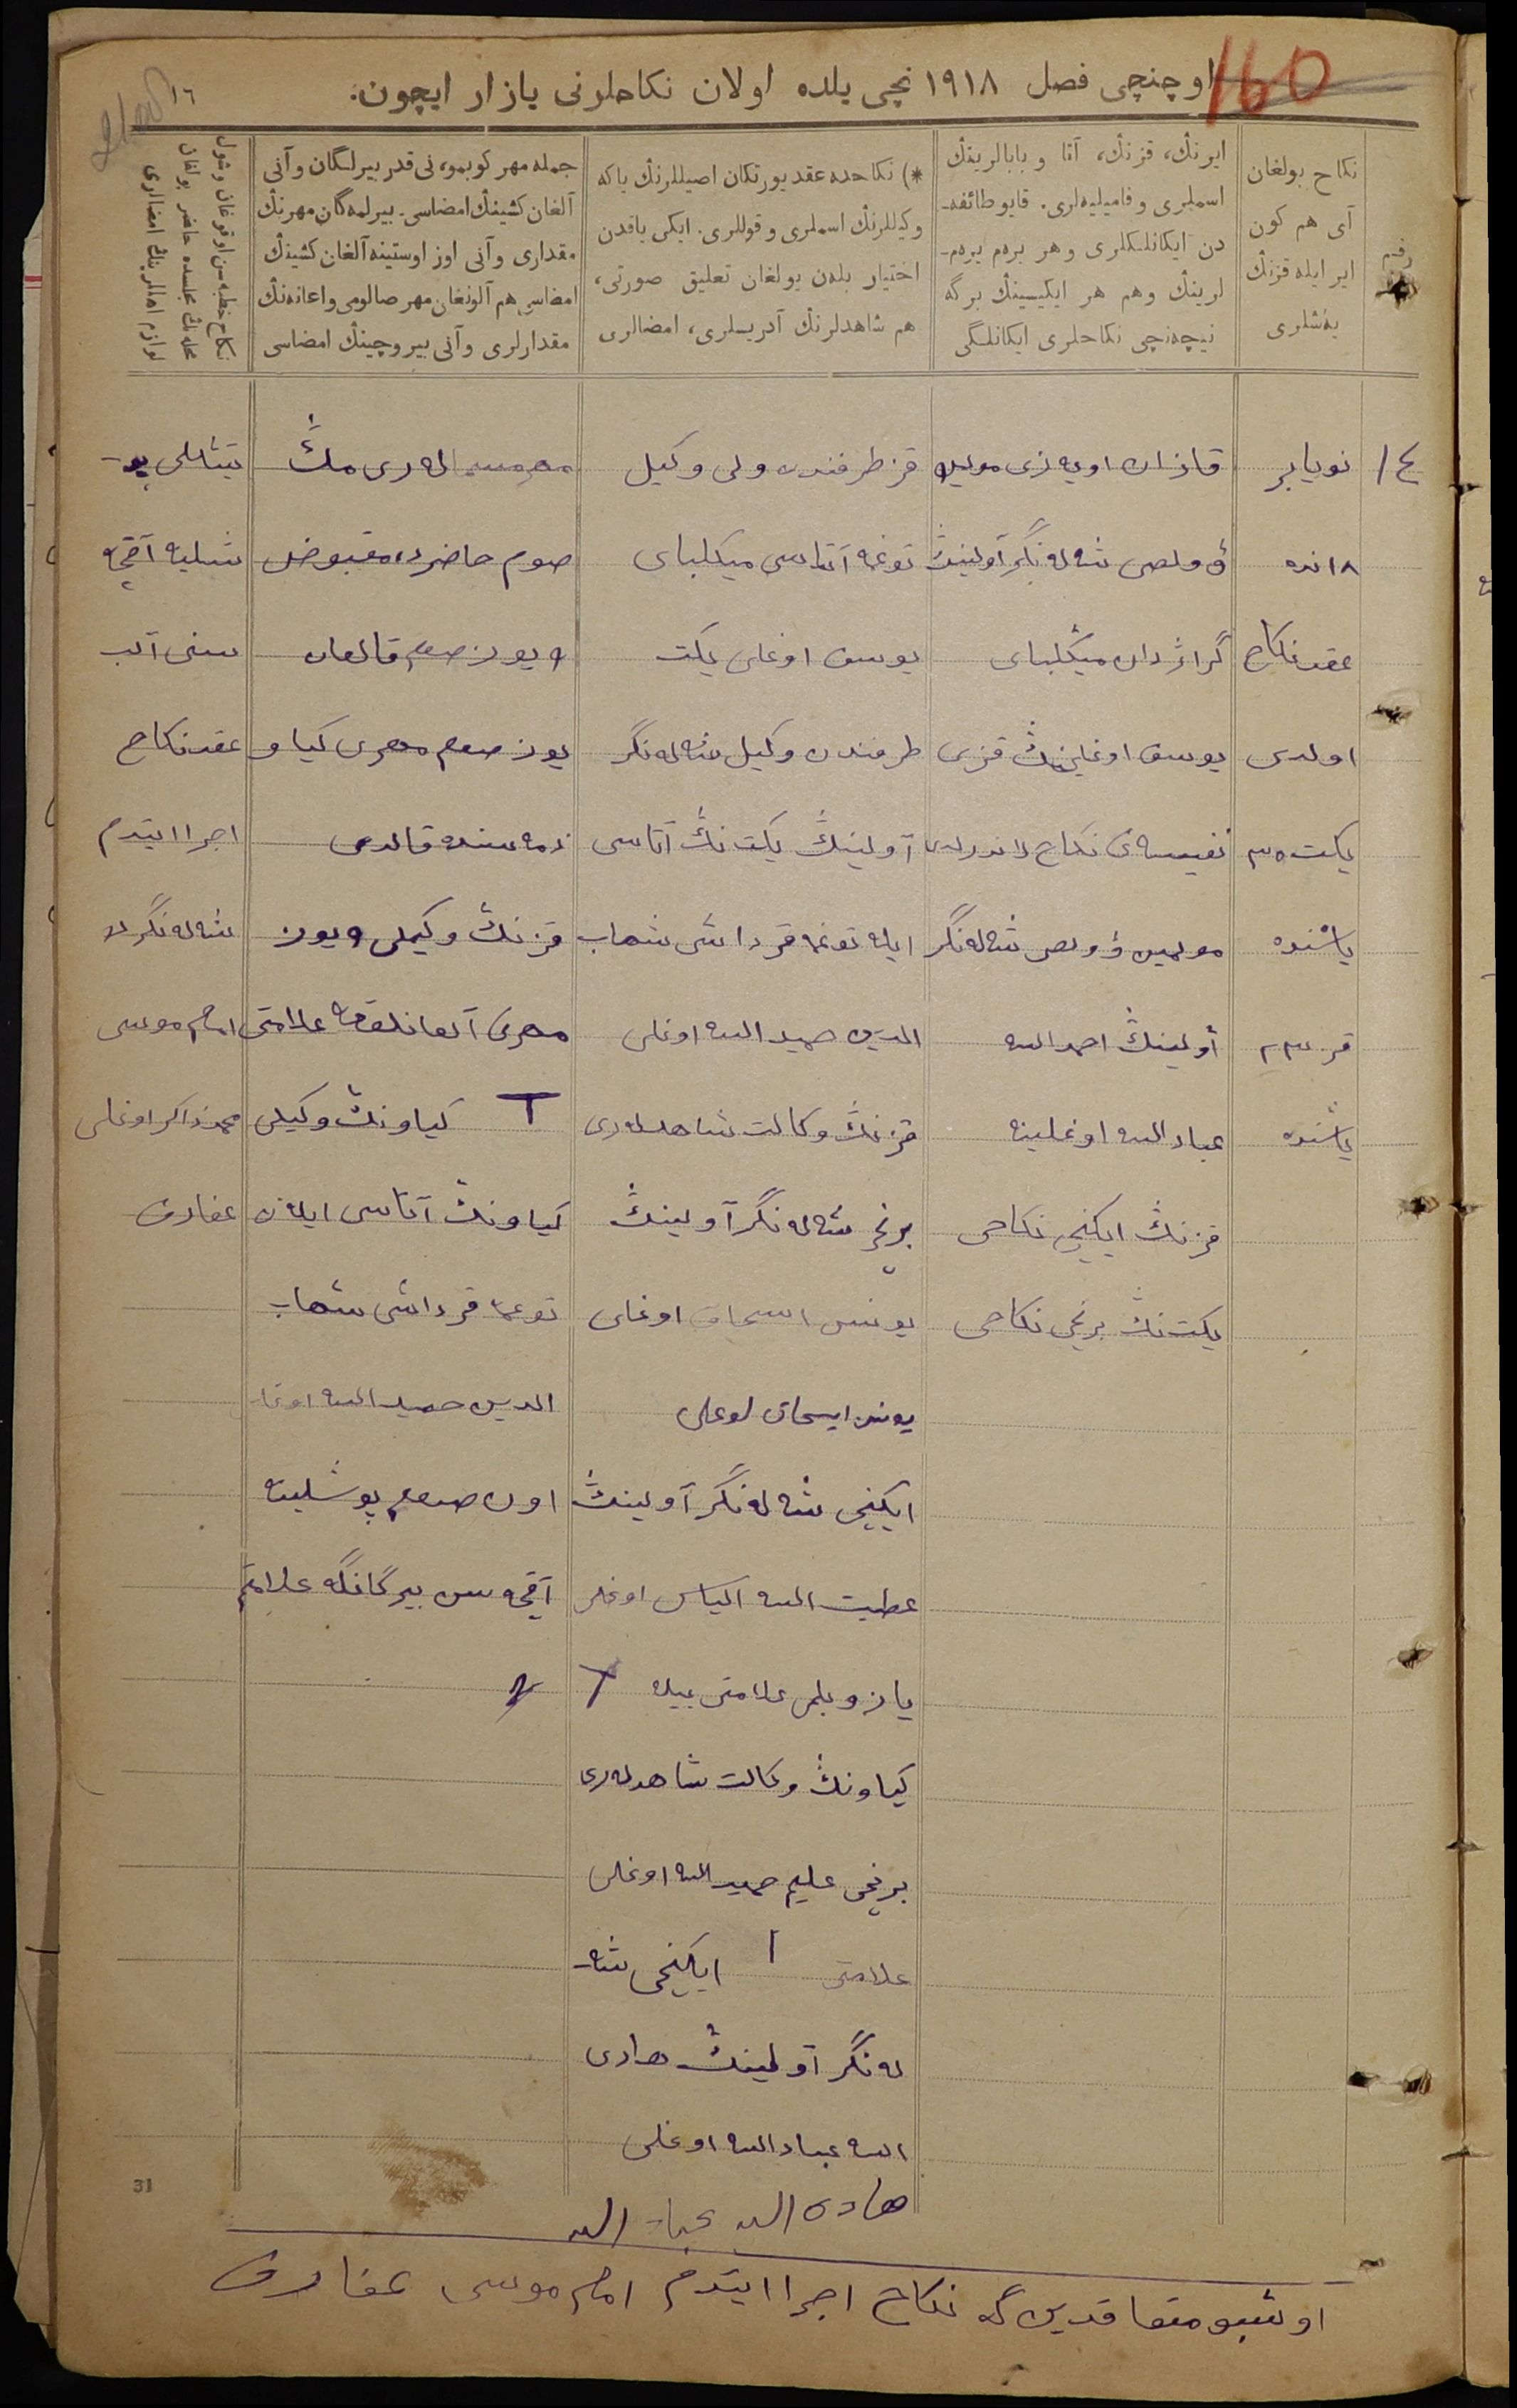 160
اوچنچی فصل ۱۹۱۸ نچی یلده اولان نکاحلرنی یازار ایچون.
۱٦
رقم
نکاح بولغان
آی هم کون
ایر ایله قزنڭ
یەشلری
ایرنڭ، قزنڭ، آتا و بابالرینڭ
اسملری و فامیلیەلری. قایو طائفە-
دن ایکانلکلری و هر برەم برەم-
لرینڭ وهم هر ایکیسینڭ برگه
نیچەنچی نکاحلری ایکانلگی
*) نکاحده عقد یورتکان اصیللرنڭ یاکه
وکیللرنڭ اسملری و قوللری. ایکی یاقدن
اختیار بلەن بولغان تعلیق صورتی،
هم شاهدلرنڭ آدریسلری، امضالری
جمله مهر کوبمو، نی قدر بیرلگان وآنی
آلغان کشینڭ امضاسی. بیرلمەگان مهرنڭ
مقداری وآنی اوز اوستینه آلغان کشینڭ
امضاسی هم آلونغان مهر صالومی واعانەنڭ
مقدارلری وآنی بیروچینڭ امضاسی
نکاح خطبەسن اوقوغان وشول
محلەنڭ مجلسده حاضر بولغان
لوازم اهللرینڭ امضالری
۱٤
نویابر
۱۸ نده
عقد نکاح
اولدی
یکت ۳۵
یاشنده
قز ۲۳
یاشنده
قازان اویەزی مولمین
وولصی شەلەنگر آولینڭ
گراژدان میکلبای
یوسف اوغلینڭ قزی
نفیسەنی نکاح لاندرلدی
مولمین وولصی شەلەنگر
آولینڭ احمدالله
عبادالله اوغلینه
قزنڭ ایکنچی نکاحی
یکت نڭ برنچی نکاحی
قز طرفندن ولی وکیل
توغمه آتاسی میکلبای
یوسف اوغلی یکت
طرفندن وکیل شەلەنگر
آولینڭ یکت نڭ آتاسی
ایله توغمه قرداشی شهاب
الدین حمیدالله اوغلی
قزنڭ وکالت شاهدلەری
برنچی شەلەنگر آولینڭ
یونس اسحاق اوغلی
یونس ایسحاق اوغلی
ایکنچی شەلەنگر آولینڭ
عطیت الله الیاس اوغلی
یازو بلمی علامتی بیله T
کیاونڭ وکالت شاهدلەری
برنچی علیم حمیدالله اوغلی
علامتی ا ایکنچی شە-
لەنگر آولینڭ هادی
الله عبادالله اوغلی
هادی الله عباد الله
مهر مسمالەری مڭ
صوم حاضرده مقبوض
۹ یوز صوم قالغان
یوز صوم مهری کیاو
ذمەسنده قالدی
قزنڭ وکیلی ۹ یوز
مهرنی آلغانلقغه علامتی
T کیاونڭ وکیلی
کیاونڭ آتاسی ایله
توغمه قرداشی شهاب
الدین حمیدالله اوغلی
اون صوم پوشلینه
آقچەسن بیرگانگه علامتم
یتشلی پو-
شلینه آقچه
سنی آلب
عقد نکاح
اجرا ایتدم
شەلەنگر
امام موسی
محمدذاکر اوغلی
غفارف
31
اوشبو متعاقدین گه نکاح اجرا ایتدم امام موسی غفارف